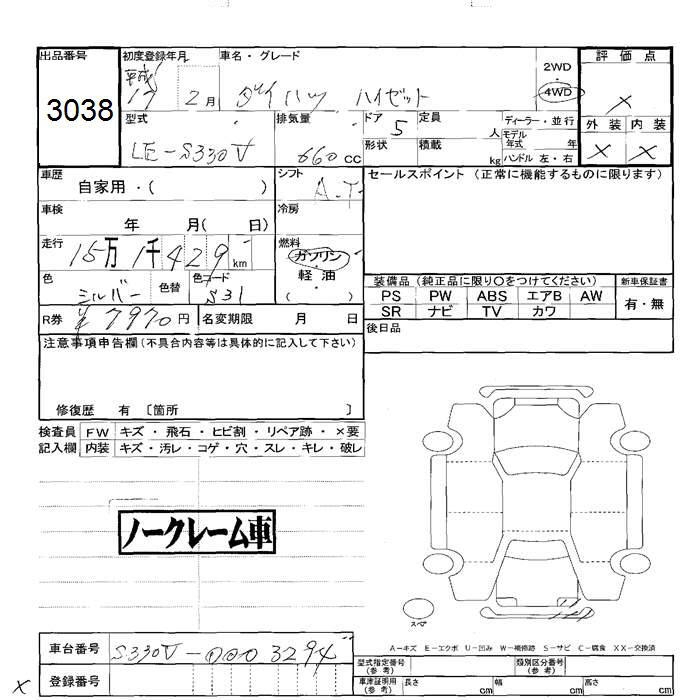 出品番号
3038
初度登録年月
平成
17 2月
車名・グレード
ダイハツ ハイゼット
2WD
・
4WD
評価点
×
外装 内装
× ×
型式
LE-S330V
排気量
660 cc
ドア 5
形状
定員 人
積載 kg
ディーラー・並行
モデル年式 年
ハンドル 左・右
車歴
自家用・( )
シフト
A.T
セールスポイント(正常に機能するものに限ります)
車検
年 月( 日)
冷房
走行
15万1千429km
燃料
ガソリン
・
軽油
( )
色
シルバー
色替
色コード
S31
装備品(純正品に限り○をつけてください)
新車保証書
PS PW ABS エアB AW
有・無
SR ナビ TV カワ
R券 ¥7970円
名変期限 月 日
後日品
注意事項申告欄(不具合内容等は具体的に記入して下さい)
修復歴 有 〔箇所 〕
検査員 FW キズ・飛石・ヒビ割・リペア跡・×要
記入欄 内装 キズ・汚レ・コゲ・穴・スレ・キレ・破レ
ノークレーム車
スペア
A-キズ E-エクボ U-凹み W-補修跡 S-サビ C-腐食 XX-交換済
車台番号 S330V-0003294
登録番号
×
型式指定番号(参考)
類別区分番号(参考)
車庫証明用(参考) 長さ cm 幅 cm 高さ cm